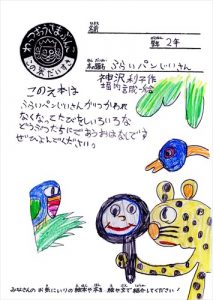 わっかおかほんこ
この本だいすき
学年 2年
本の題名 ふらいパンじいさん
神沢利子作
堀内誠一絵
このえ本は
ふらいパンじいさんがつかわれ
なくなったびをしいろいろな
どうぶつたちにであうおはなしです。
ぜひよんでください。
みなさんの お気にいりの 絵本や本を 絵や文で紹介してください!